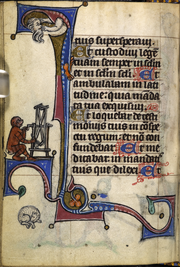 tuis superspaui.
Et custodiam legem
tuam semper in sclm
et in sclm scli. Et
ambulabam in lati
tudine: quia manda
ta tua exquisiui.
Et loquebar de testi
moniis tuis in cospe
ctu regum: et non con
fundebar. Et me
ditabar in mandatis
tuis que dilexi